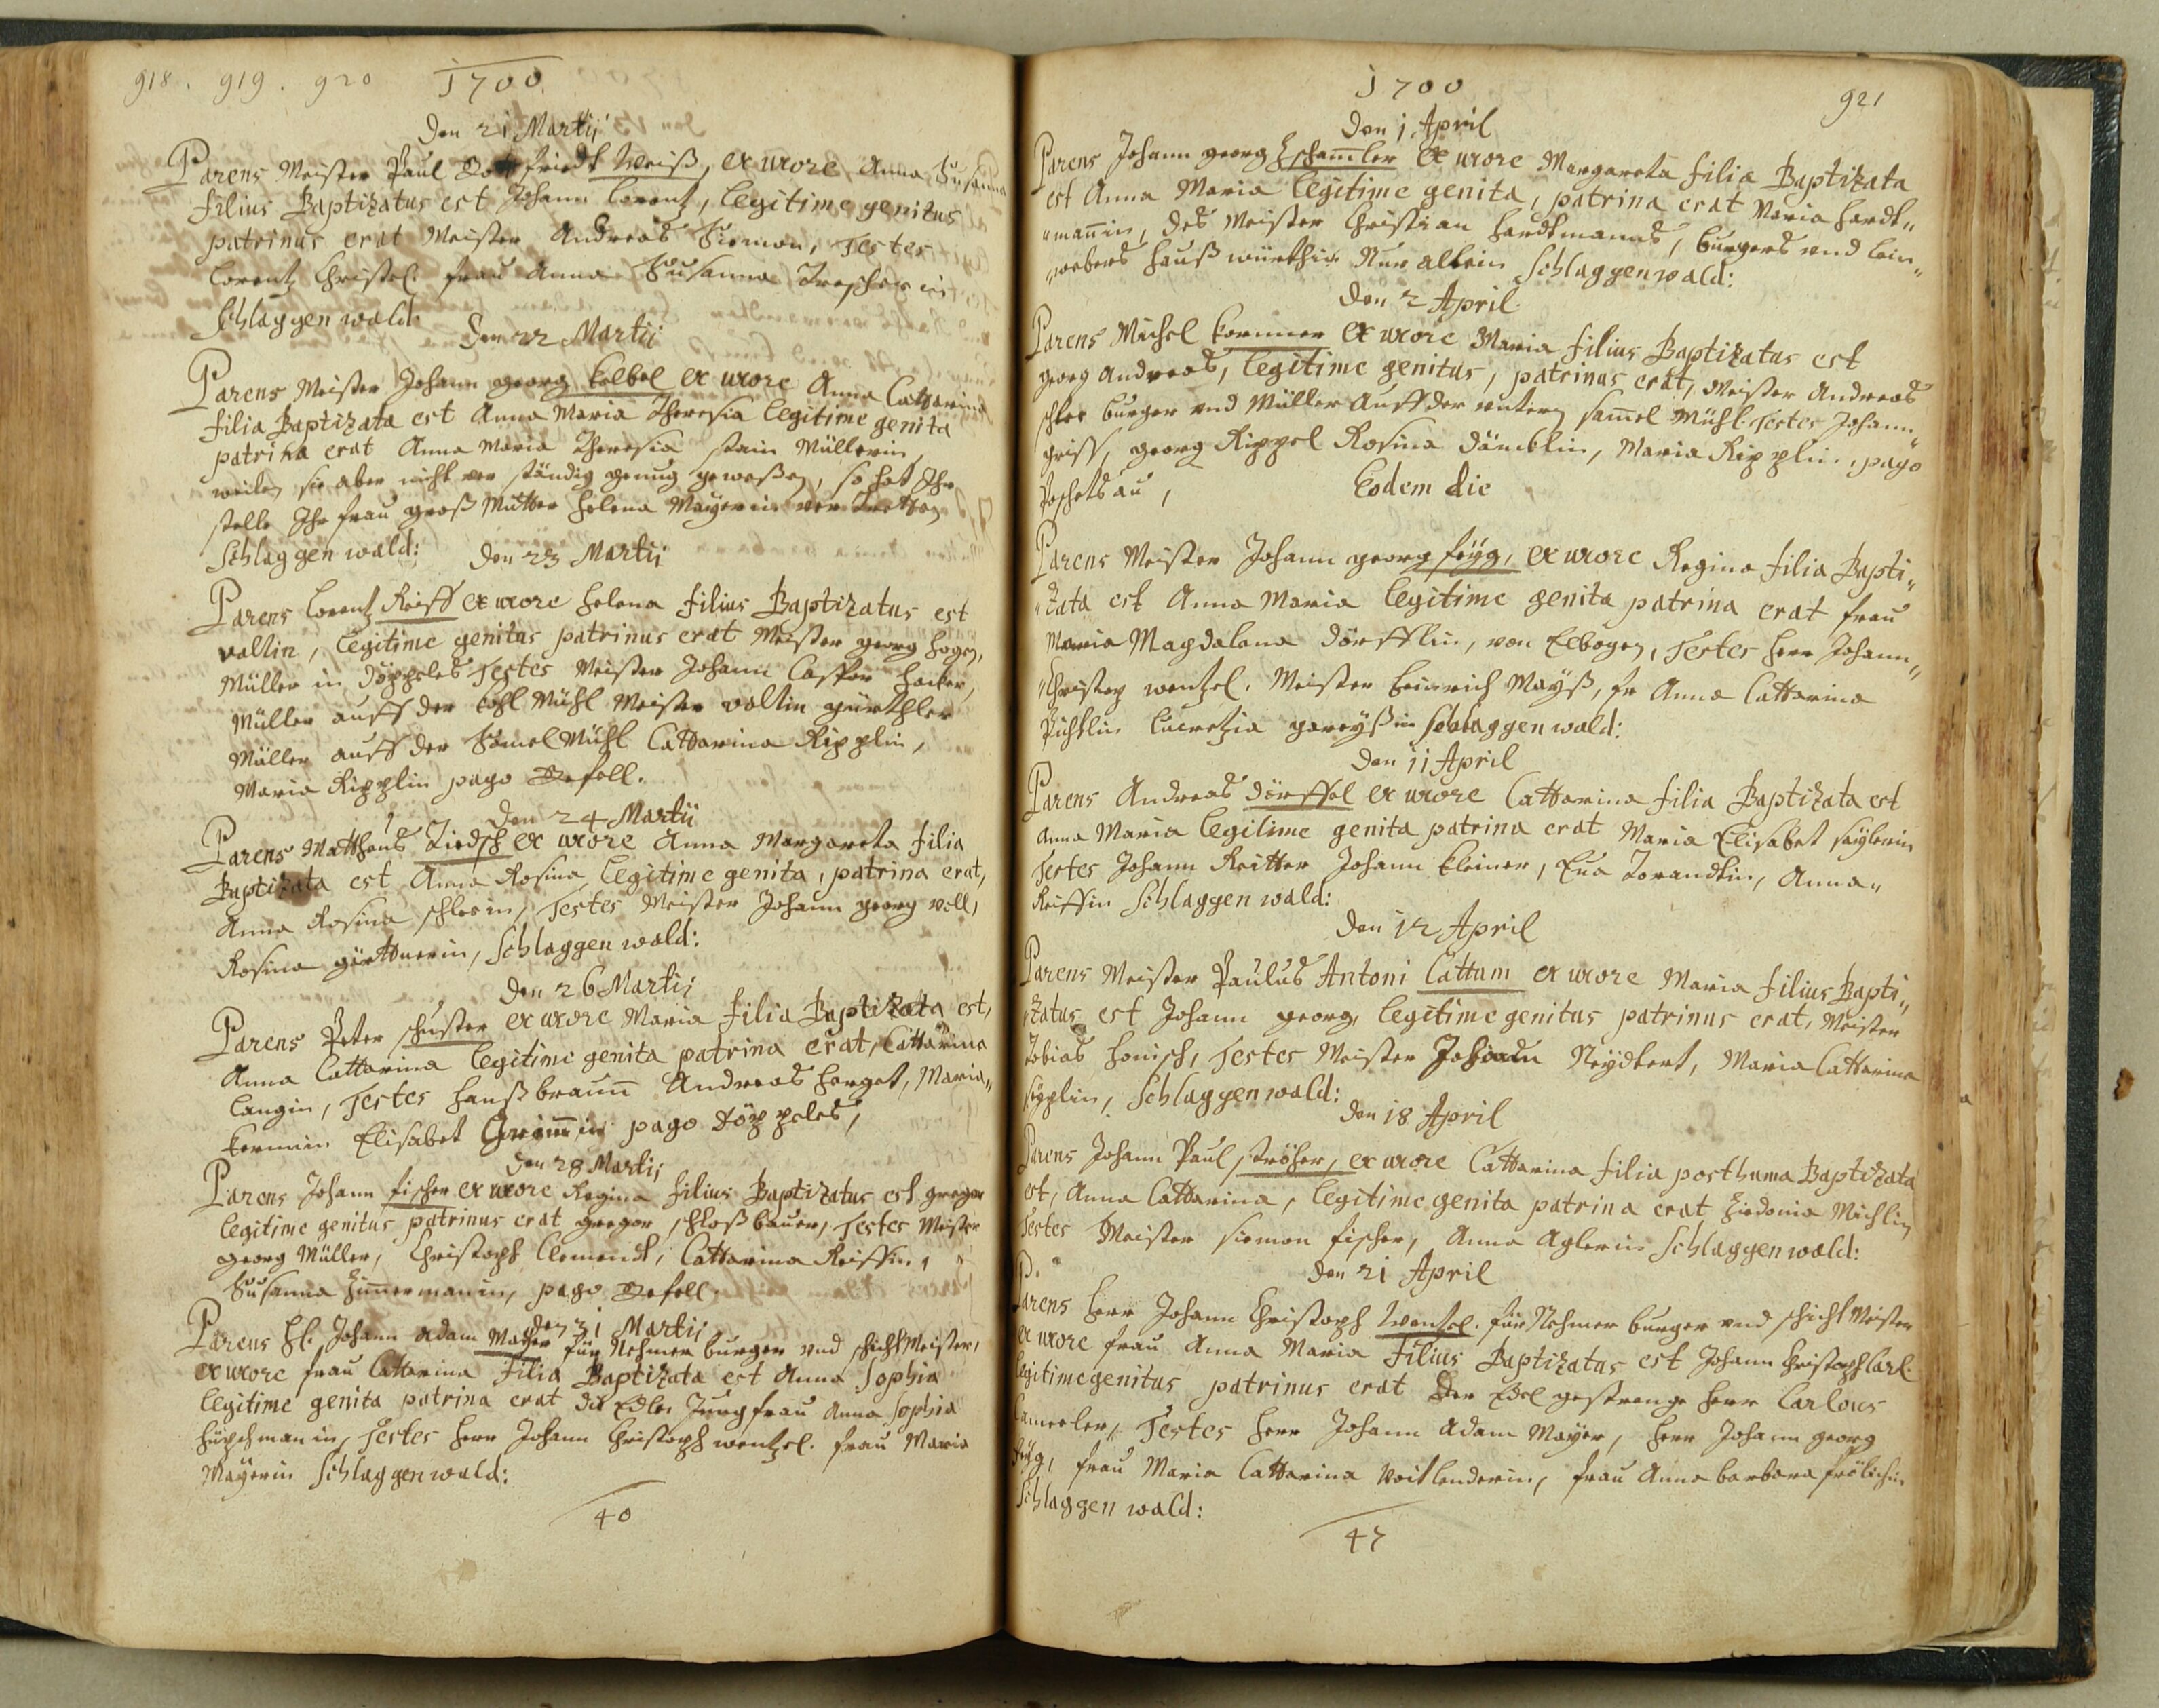 918. 919. 920 1700
Den 21 Martij
Parens Meister Paul Gottfriedt Weiß, ex uxore Anna Susanna
filius Baptizatus est Johann Lorentz, legitime genitus
patrinus erat Meister Andreas Siemon, Testes
Lorentz Christel. frau Anna Susanna
Schlaggenwald:
Den 22 Martij
Parens Meister Johann georg Kolbel ex uxore Anna Catharina
filia Baptizata est Anna Maria Theresia legitime genita
patrina erat Anna Maria Theresia stain Müllerin,
weilen sie aber nicht ver ständig genug geweßen, so hat Ihr
stelle Ihr frau groß Mutter Helena Mayerin ver tretten
Schlaggenwald:
Den 23 Martij
Parens Lorentz Reiff ex uxore Helena filius Baptizatus est
valtin, legitime genitus patrinus erat Meister georg
Müller in Döppeles Testes Meister Johann Casper
Müller auff der Kohl Mühl Meister valtin gürthler
Müller auff der Sämel Mühl Cattarina Ripplin,
Maria Ripplin pago Gefell.
Den 24 Martii
Parens Mattheus ex uxore Anna Margareta filia
Baptizata est Anna Rosina, legitime genita, patrina erat,
Anna Rosina schlerin, Testes Meister Johann georg voll,
Rosina gärttnerin, Schlaggenwald:
Den 26 Martij
Parens Peter schuster ex uxore Maria filia Baptizata est,
Anna Cattarina legitime genita patrina erat, Cattarina
Langin, Testes Hanß braun Andreas Herget, Maria„
Kermin Elisabet Grimmin pago Döppeles,
Den 28 Martij
Parens Johann fischer ex uxore Regina filius Baptizatus est gregor
legitime genitus patrinus erat gregor schloßbauer, Testes Meister
georg Müller, Christoph Clement, Cattarina Reiffin,
Susanna Zimmermanin, pago Gefell
Den 31 Martij
Parens H. Johann Adam Mayer für Nehmer burger und schicht Meister,
ex uxore frau Cattarina Filia Baptizata est Anna Sophia
legitime genita patrina erat die Edle Jungfrau Anna Sophia
Testes Herr Johann Christoph wentzel. frau Maria
Mayerin Schlaggenwald:
40
1700 921
Den 1 April
Parens Johann georg ex uxore Margareta filia Baptizata
est Anna Maria legitime genita, patrina erat Maria Hardt„
„manin, des Meister Christian Hardtmanns, burgers und Lein„
„webers Hauß würthin Nur allein Schlaggenwald:
Den 2 April
Parens Michel Kermer ex uxore Maria filius Baptizatus est
georg Andreas, legitime genitus, patrinus erat, Meister Andreas
burger und Müller auff der untern Sämel Mühl. Testes Johann„
georg Rippel Rosina Dämblin, Maria Ripplin, pago
Poschetzau,
Eodem die
Parens Meister Johann georg feÿg, ex uxore Regina filia Bapti„
„zata est Anna Maria legitime genita patrina erat frau
Maria Magdalena Dörfflin, von Elbogen, Testes Herr Johann„
„Christop wentzel. Meister Heinrich Mayß, fr Anna Cattarina
Püchlin Lucretzia Schlaggenwald:
Den 11 April
Parens Andreas Dörffel ex uxore Cattarina filia Baptizata est
Anna Maria legitime genita patrina erat Maria Elisabet saylerin
Testes Johann Reitter Johann Kleiner, Eua Anna„
Reiffin Schlaggenwald:
Den 12 April
Parens Meister Paulus Antoni Cattum ex uxore Maria filius Bapti„
zatus est Johann georg, legitime genitus patrinus erat, Meister
Tobias Honisch, Testes Meister Neydtert, Maria Cattarina
Schlaggenwald:
Den 18 April
Parens Johann Paul ströher, ex uxore Cattarina filia posthuma Baptizata
est, Anna Cattarina, legitime genita patrina erat Sidonia Michlin
Testes Meister Siemon fischer, Anna Aglerin Schlaggenwald:
Den 21 April
Parens Herr Johann Christoph Wentzel. für Nehmer burger und schicht Meister
ex uxore frau Anna Maria Filius Baptizatus est Johann Christoph Carl.
legitime genitus patrinus erat Der Edel gestrenge Herr Carlous
Testes Herr Johann Adam Mayer, Herr Johann georg
feÿg, frau Maria Cattarina Voitlenderin, frau Anna barbara frölichin
Schlaggenwald:
47